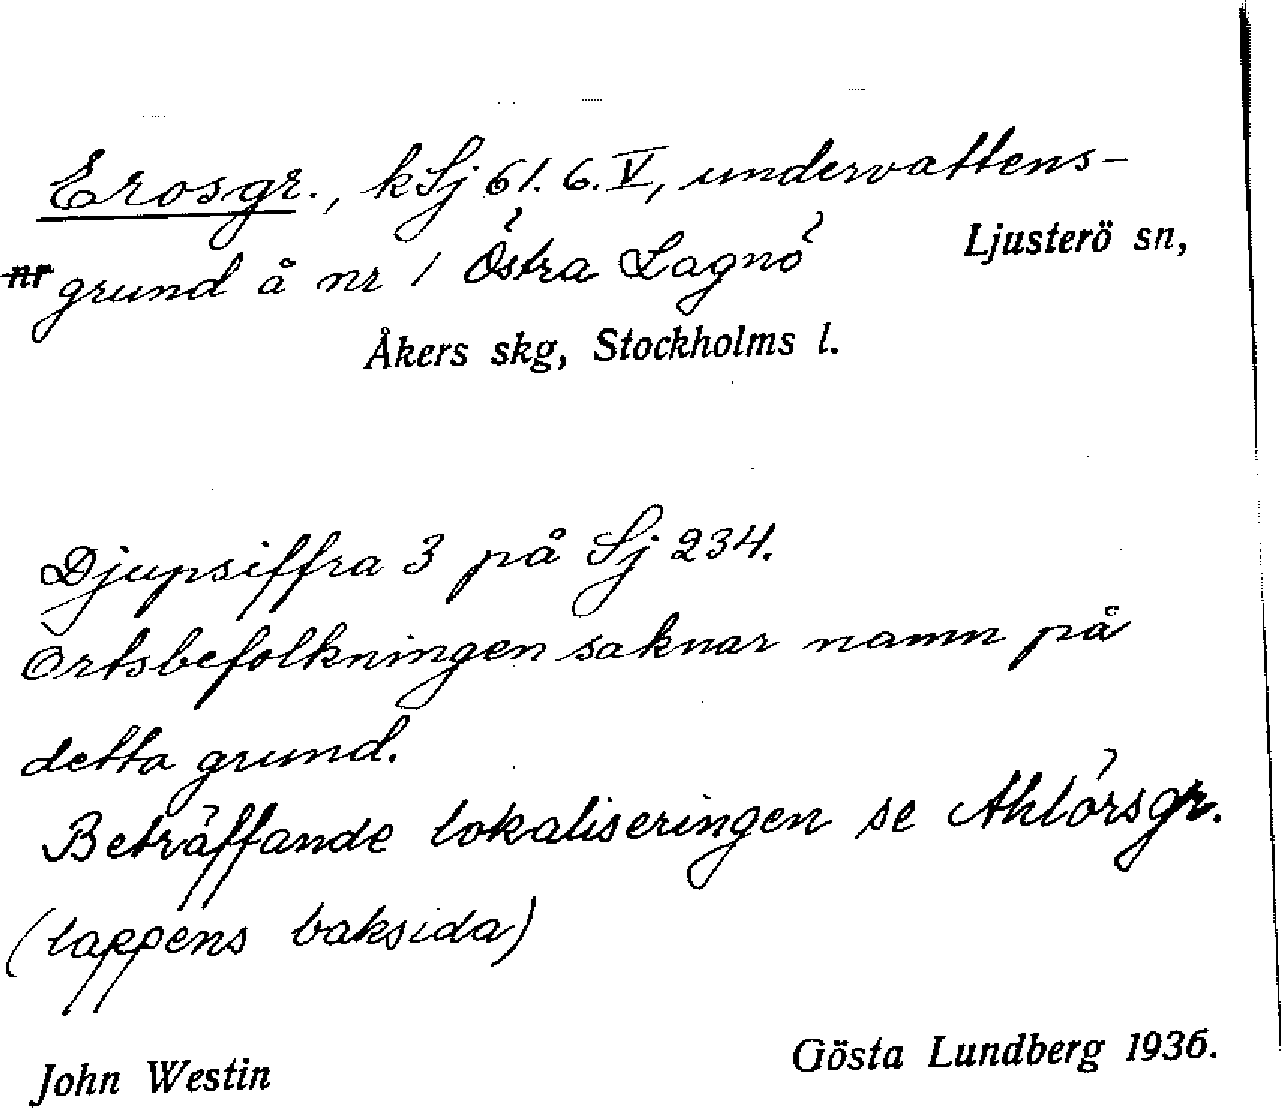 Erosgr., kSj 61. 6. V, undervattens-
Ljusterö sn,
nr grund å nr 1 Östra Lagnö
Åkers skg, Stockholms l.
Djupsiffra 3 på Sj 234.
Ortsbefolkningen saknar namn på
detta grund.
Beträffande lokaliseringen se Ahlörsgr.
(lappens baksida)
John Westin
Gösta Lundberg 1936.